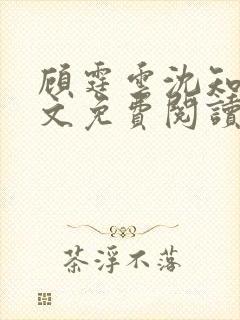 顾霆雲沈知
文免費閱讀
茶浮不落